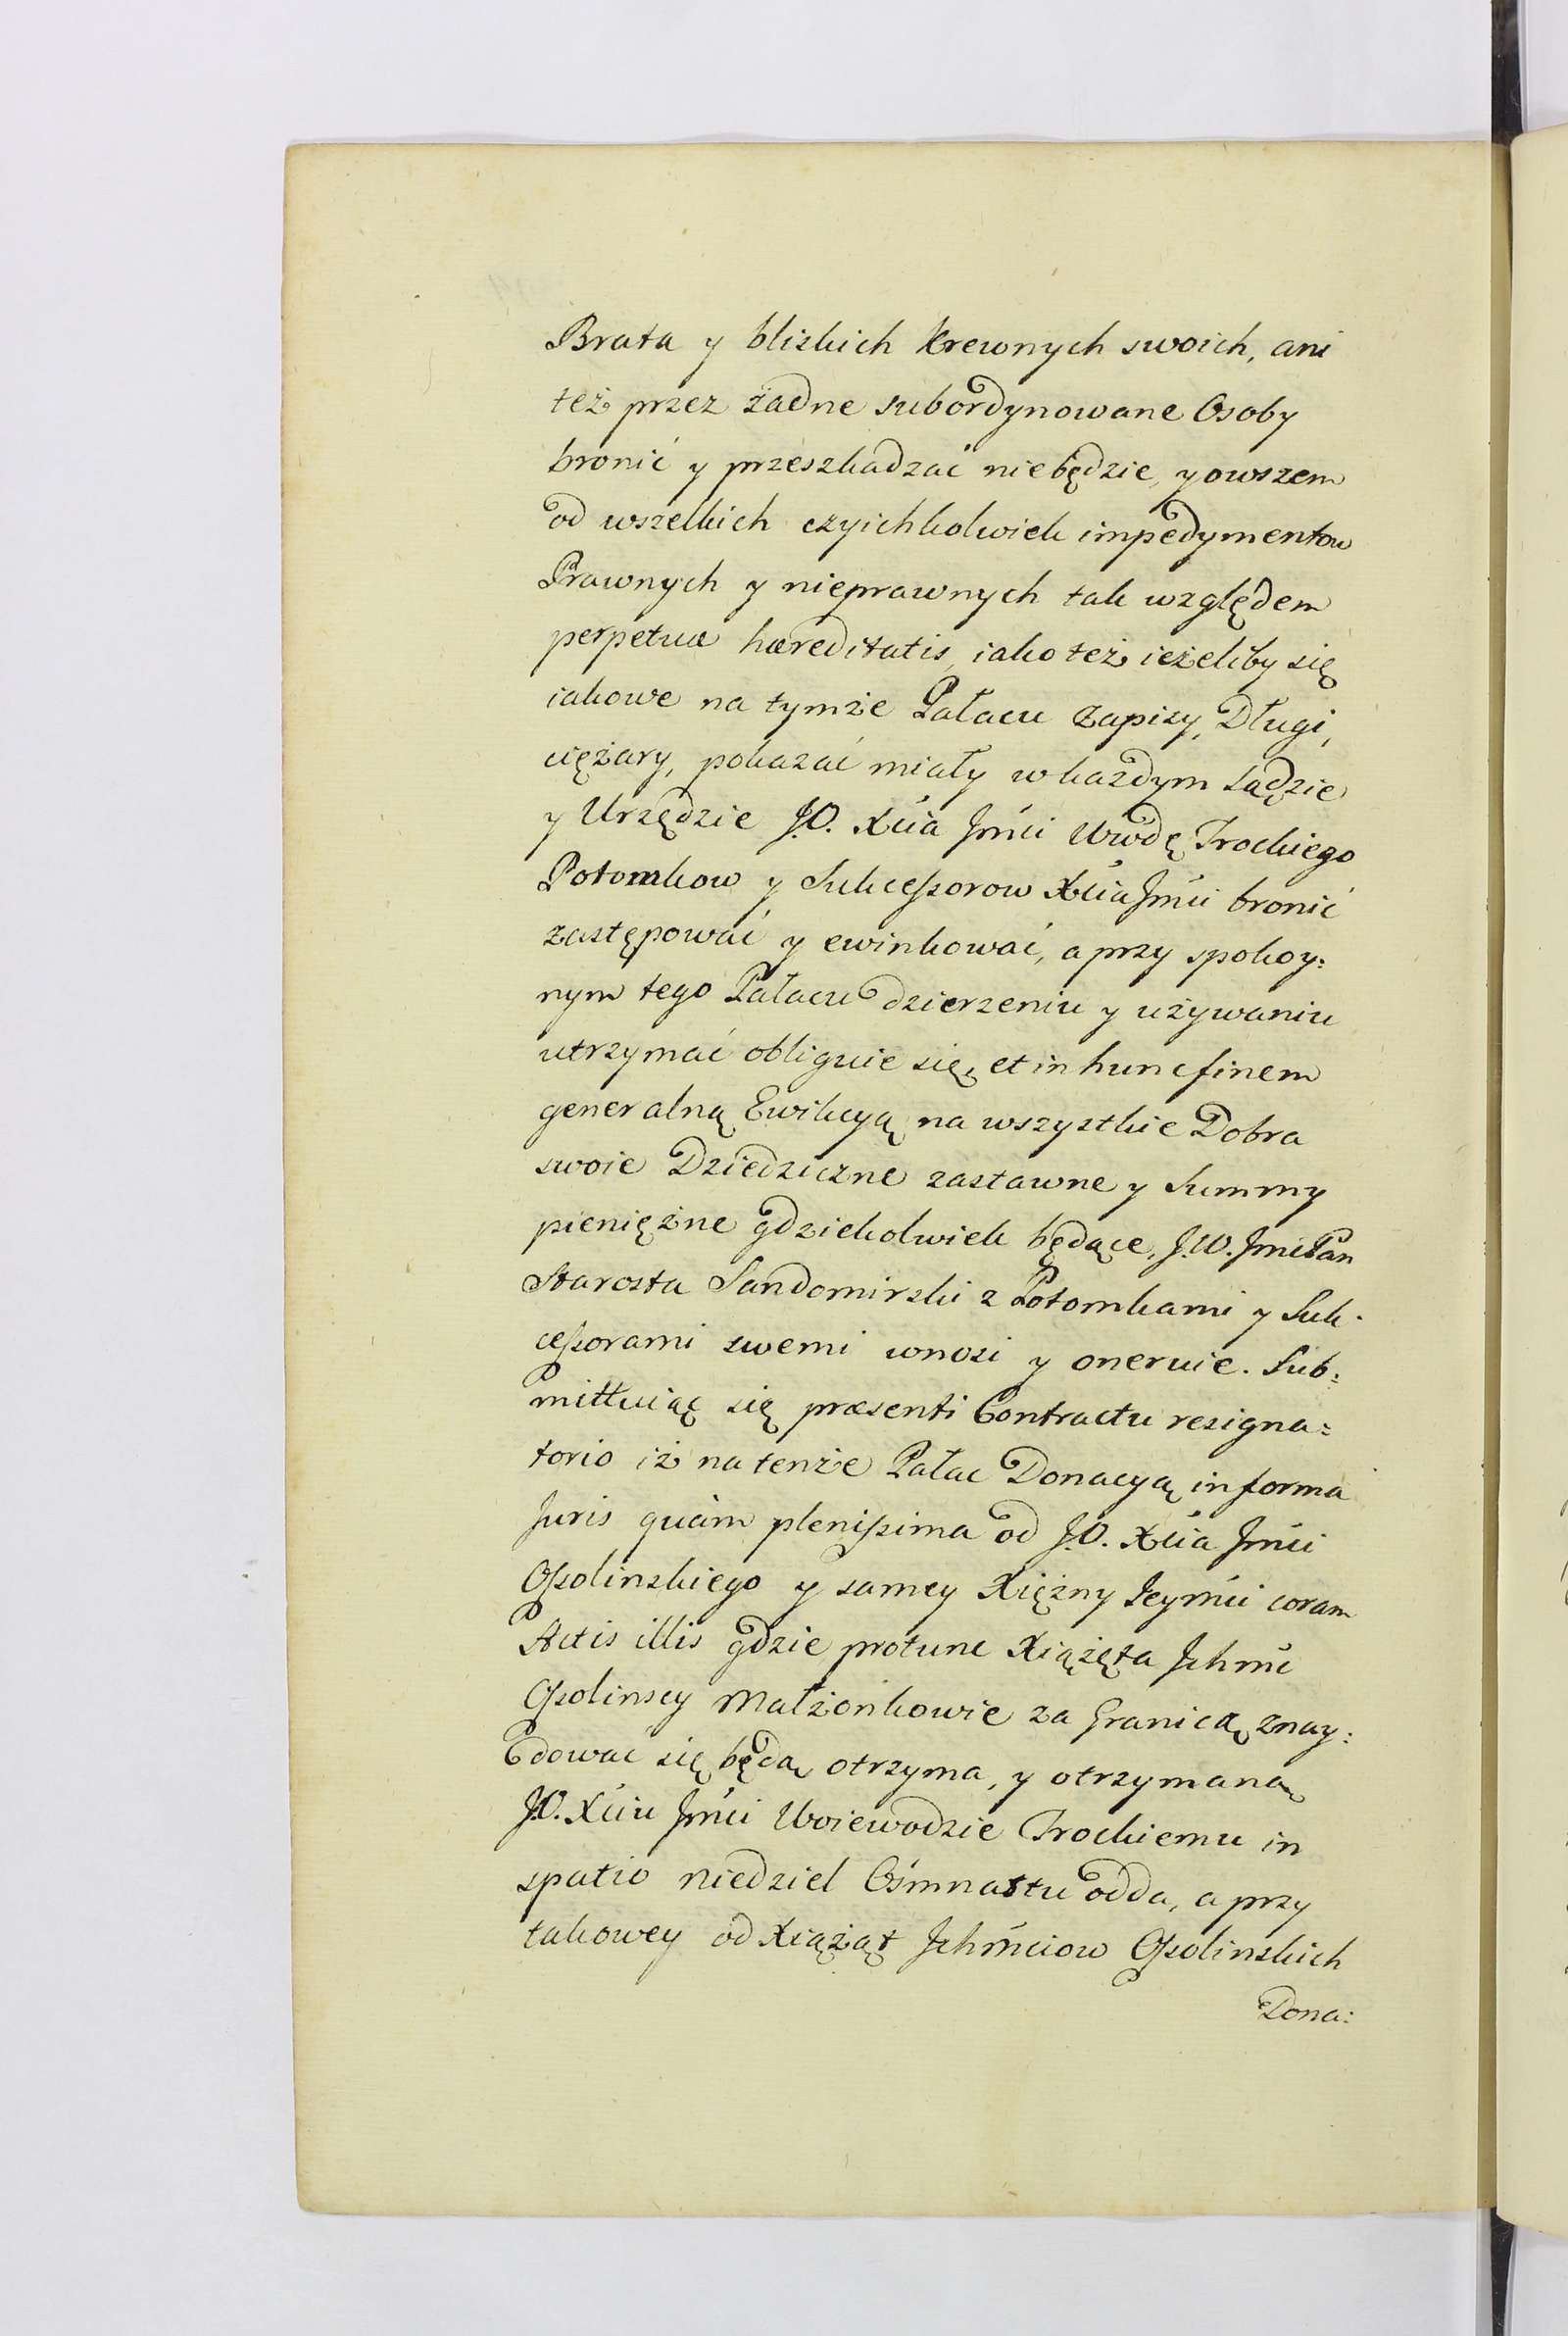 Brata y blizkich Krewnych swoich, ani
też przez żadne subordynowane Osoby
bronić y przeszkadzać niebędzie, y owszem
od wszelkich czyichkolwiek impedymentow
Prawnych y nieprawnych tak względem
perpetuæ hæreditatis, iako też ieżeliby się
iakowe na tymże Pałacu Zapisy, Długi,
ciężary, pokazać miały w każdym Sądzie
y Urzędzie J.O. Xcia Jmci Wwdę Trockiego
Potomkow y Sukcessorow Xcia Jmci bronić
zastępować y ewinkować, a przy spokoy:
nym tego Pałacu dzierzeniu y używaniu
utrzymać obliguie się, et in hunc finem
generalną Ewikcyą na wszystkie Dobra
swoie Dziedziczne zastawne y Summy
pieniężne gdziekolwiek będące, J.W. Jmć Pan
Starosta Sandomirski z Potomkami y Suk:
cessorami swemi wnosi y oneruie. Sub:
mittuiąc się præsenti Contractu resigna:
torio iż na tenże Pałac Donacyą in forma
Juris quàm plenissima od J.O. Xcia Jmci
Ossolinskiego y samey Xiężny Jeymci coram
Actis illis gdzie protunc Xiążęta Jchmć
Ossolinscy Małżonkowie za Granicą znay:
dować się będą otrzyma, y otrzymaną
J.O. Xciu Jmci Woiewodzie Trockiemu in
spatio niedziel Ośmnastu odda, a przy
takowey od Xiążąt Jchmciow Ossolinskich
Dona: